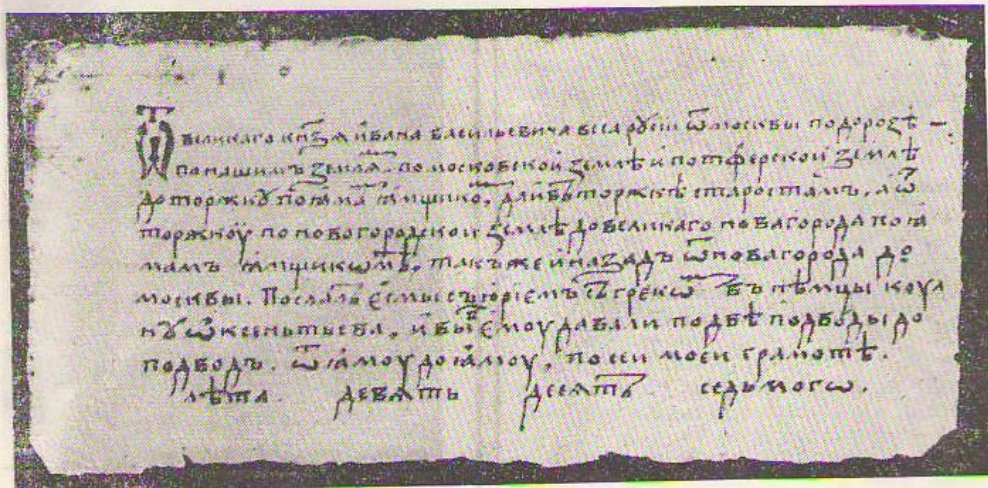 Ѿ великаго кнꙗзѧ ивана васильевича всеа руси ѿ москвы подорозѣ
по нашимъ землѧ. по московской землѣ и по тферской землѣ
до торжку по ꙗма ꙗмщико, даи въ торжкѣ старостамъ, а ѿ
торжкоу по новогородской землѣ до великаго новагорода по ꙗ
мамъ ꙗмщикѡмъ, такъже и назадъ ѿ новагорода до
москвы. Послалъ есмы съ юрїемъ съ грекѡ въ нѣмцы коул
ку ѡксеньтьева, и вы емоу давали по двѣ подводы до
подводъ. ѿ ꙗмоу до ꙗмоу, по сеи моеи грамотѣ.
лѣта девѧть десѧтъ седьмогѡ.